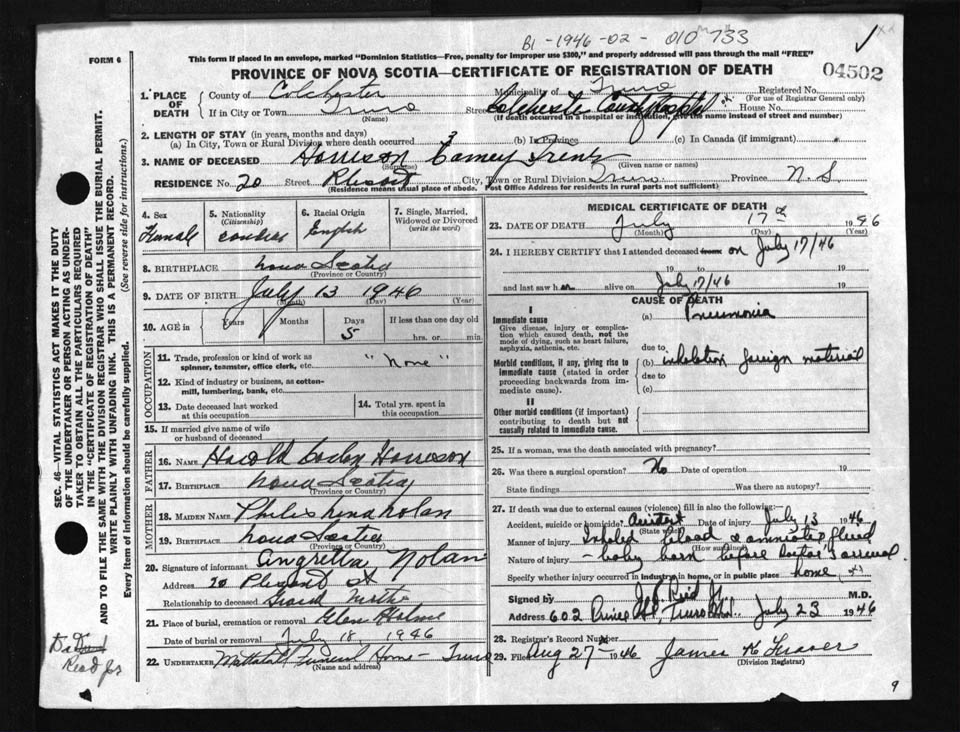 B1-1946-02-010733
FORM 6
This form if placed in an envelope, marked "Dominion Statistics—Free, penalty for improper use $300," and properly addressed will pass through the mail "FREE"
PROVINCE OF NOVA SCOTIA—CERTIFICATE OF REGISTRATION OF DEATH
04502
1. PLACE OF DEATH
County of Colchester Municipality of Truro Registered No.
(For use of Registrar General only)
If in City or Town Truro Street Colchester County Hospital House No.
(Name) (If death occurred in a hospital or institution, give the name instead of street and number)
2. LENGTH OF STAY (in years, months and days)
(a) In City, Town or Rural Division where death occurred 3 (b) In Province (c) In Canada (if immigrant)
3. NAME OF DECEASED Harrison
(Surname) (Given name or names)
RESIDENCE No. 20 Street City, Town or Rural Division Truro Province N.S.
(Residence means usual place of abode. Post Office Address for residents in rural parts not sufficient)
4. Sex
5. Nationality
(Citizenship)
6. Racial Origin
English
7. Single, Married, Widowed or Divorced
(write the word)
8. BIRTHPLACE Nova Scotia
(Province or Country)
9. DATE OF BIRTH July 13 1946
(Month) (Day) (Year)
10. AGE in Years Months Days If less than one day old
5 hrs. or min.
OCCUPATION
11. Trade, profession or kind of work as
spinner, teamster, office clerk, etc. "None"
12. Kind of industry or business, as cotton-
mill, lumbering, bank, etc.
13. Date deceased last worked
at this occupation
14. Total yrs. spent in
this occupation
15. If married give name of wife
or husband of deceased
FATHER
16. NAME Harold Harrison
17. BIRTHPLACE Nova Scotia
(Province or Country)
MOTHER
18. MAIDEN NAME Nolan
19. BIRTHPLACE Nova Scotia
(Province or Country)
20. Signature of informant Nolan
Address 20 St
Relationship to deceased Grand Mother
21. Place of burial, cremation or removal Glen Holme
Date of burial or removal July 18 1946
22. UNDERTAKER Funeral Home - Truro
(Name and address)
MEDICAL CERTIFICATE OF DEATH
23. DATE OF DEATH July 17th 1946
(Month) (Day) (Year)
24. I HEREBY CERTIFY that I attended deceased from on July 17/46
19 to 19
and last saw her alive on July 17/46 19
CAUSE OF DEATH
I
Immediate cause
Give disease, injury or complica-
tion which caused death, not the
mode of dying, such as heart failure,
asphyxia, asthenia, etc.
(a) Pneumonia
due to
Morbid conditions, if any, giving rise to
immediate cause (stated in order
proceeding backwards from im-
mediate cause).
(b) inhalation foreign material
due to
(c)
II
Other morbid conditions (if important)
contributing to death but not
causally related to immediate cause.
25. If a woman, was the death associated with pregnancy?
26. Was there a surgical operation? No Date of operation 19
State findings Was there an autopsy?
27. If death was due to external causes (violence) fill in also the following:—
Accident, suicide or homicide? Accident Date of injury July 13 1946
(State which)
Manner of injury Inhaled blood & amniotic fluid
(How sustained)
Nature of injury - baby born before Doctor's arrival.
Specify whether injury occurred in industry, in home, or in public place home
Signed by J. Reid Jr. M.D.
Address 602 Prince St., Truro July 23 1946
28. Registrar's Record Number
29. Filed Aug 27 1946 James K Fraser
(Division Registrar)
9
SEC. 46—VITAL STATISTICS ACT MAKES IT THE DUTY
OF THE UNDERTAKER OR PERSON ACTING AS UNDER-
TAKER TO OBTAIN ALL THE PARTICULARS REQUIRED
IN THE "CERTIFICATE OF REGISTRATION OF DEATH"
AND TO FILE THE SAME WITH THE DIVISION REGISTRAR WHO SHALL ISSUE THE BURIAL PERMIT.
WRITE PLAINLY WITH UNFADING INK. THIS IS A PERMANENT RECORD.
Every item of Information should be carefully supplied. (See reverse side for instructions.)
Reid Jr